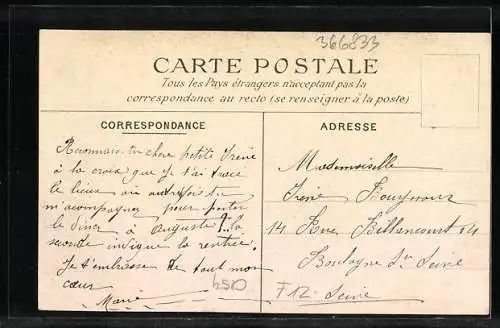 366833
CARTE POSTALE
Tous les Pays étrangers n'acceptant pas la
correspondance au recto (se renseigner à la poste)
CORRESPONDANCE
Reconnais-tu chere petite Irène
à la croix que je t'ai tracé
le lieux où autrefois tu
m'acompagner pour porter
le diner à Auguste !! la
seconde indique la rentrée.
Je t'embrasse de tout mon
cœur
Marie
ADRESSE
Mademoiselle
Irène
14 Rue Billancourt 14
Boulogne s/ Seine
Seine